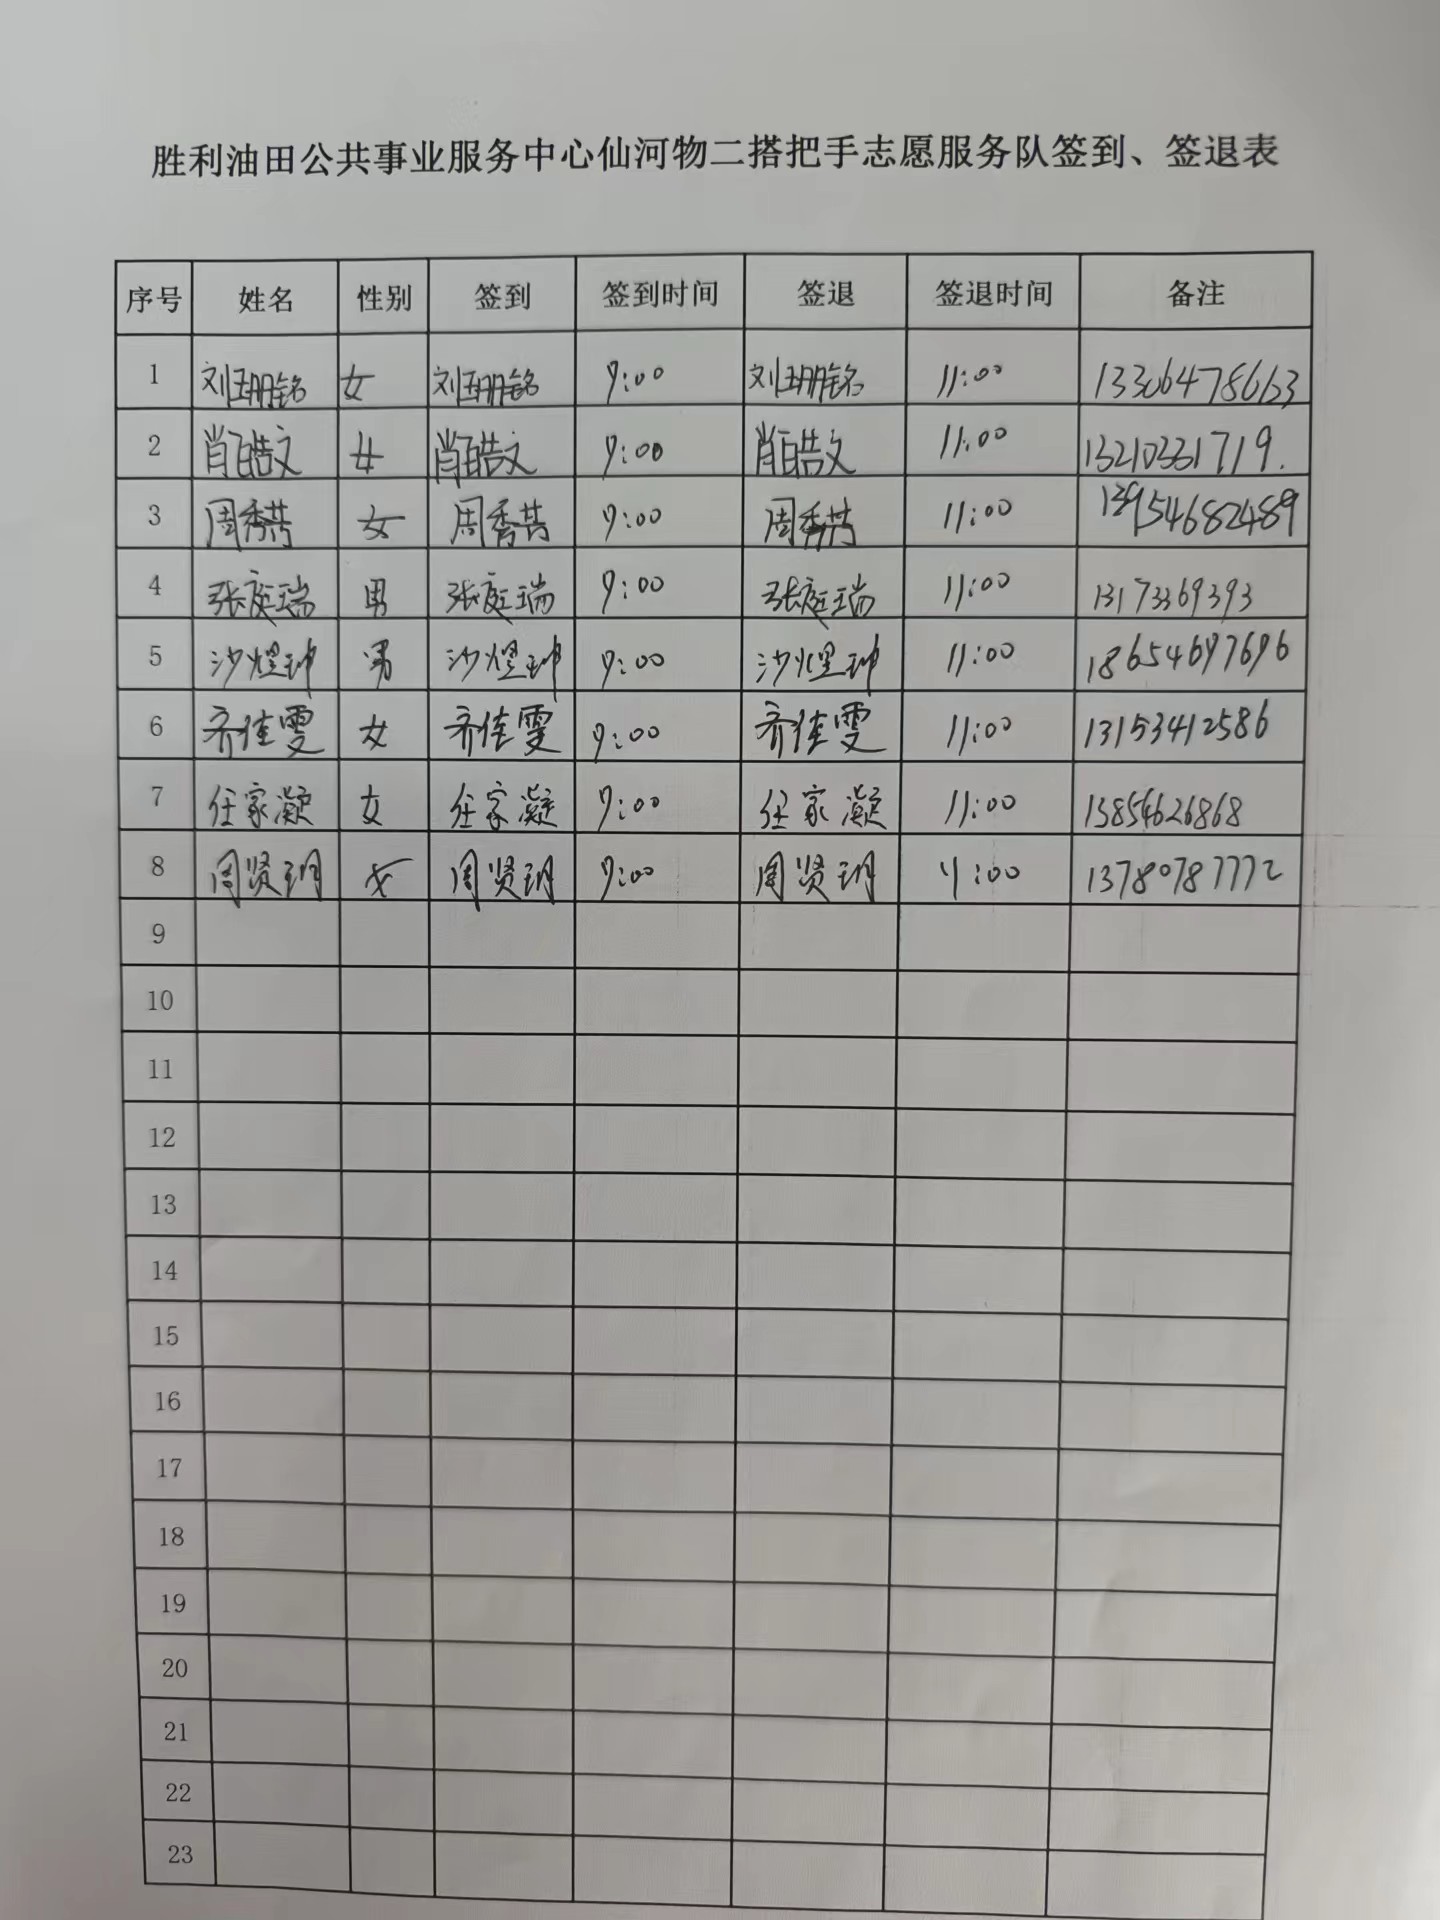 胜利油田公共事业服务中心仙河物二搭把手志愿服务队签到、签退表
序号 姓名 性别 签到 签到时间 签退 签退时间 备注
1 刘珊铭 女 刘珊铭 9:00 刘珊铭 11:00
2 肖皓文 女 肖皓文 9:00 肖皓文 11:00 13210331719.
3 周秀芸 女 周秀芸 9:00 周秀芸 11:00 13954682489
4 张庭瑞 男 张庭瑞 9:00 张庭瑞 11:00 13173369393
5 沙煜珅 男 沙煜珅 9:00 沙煜珅 11:00 18654697696
6 齐佳雯 女 齐佳雯 9:00 齐佳雯 11:00 13153412586
7 任家凝 女 任家凝 9:00 任家凝 11:00 13854626868
8 周贤玥 女 周贤玥 9:00 周贤玥 11:00 13780787772
9
10
11
12
13
14
15
16
17
18
19
20
21
22
23